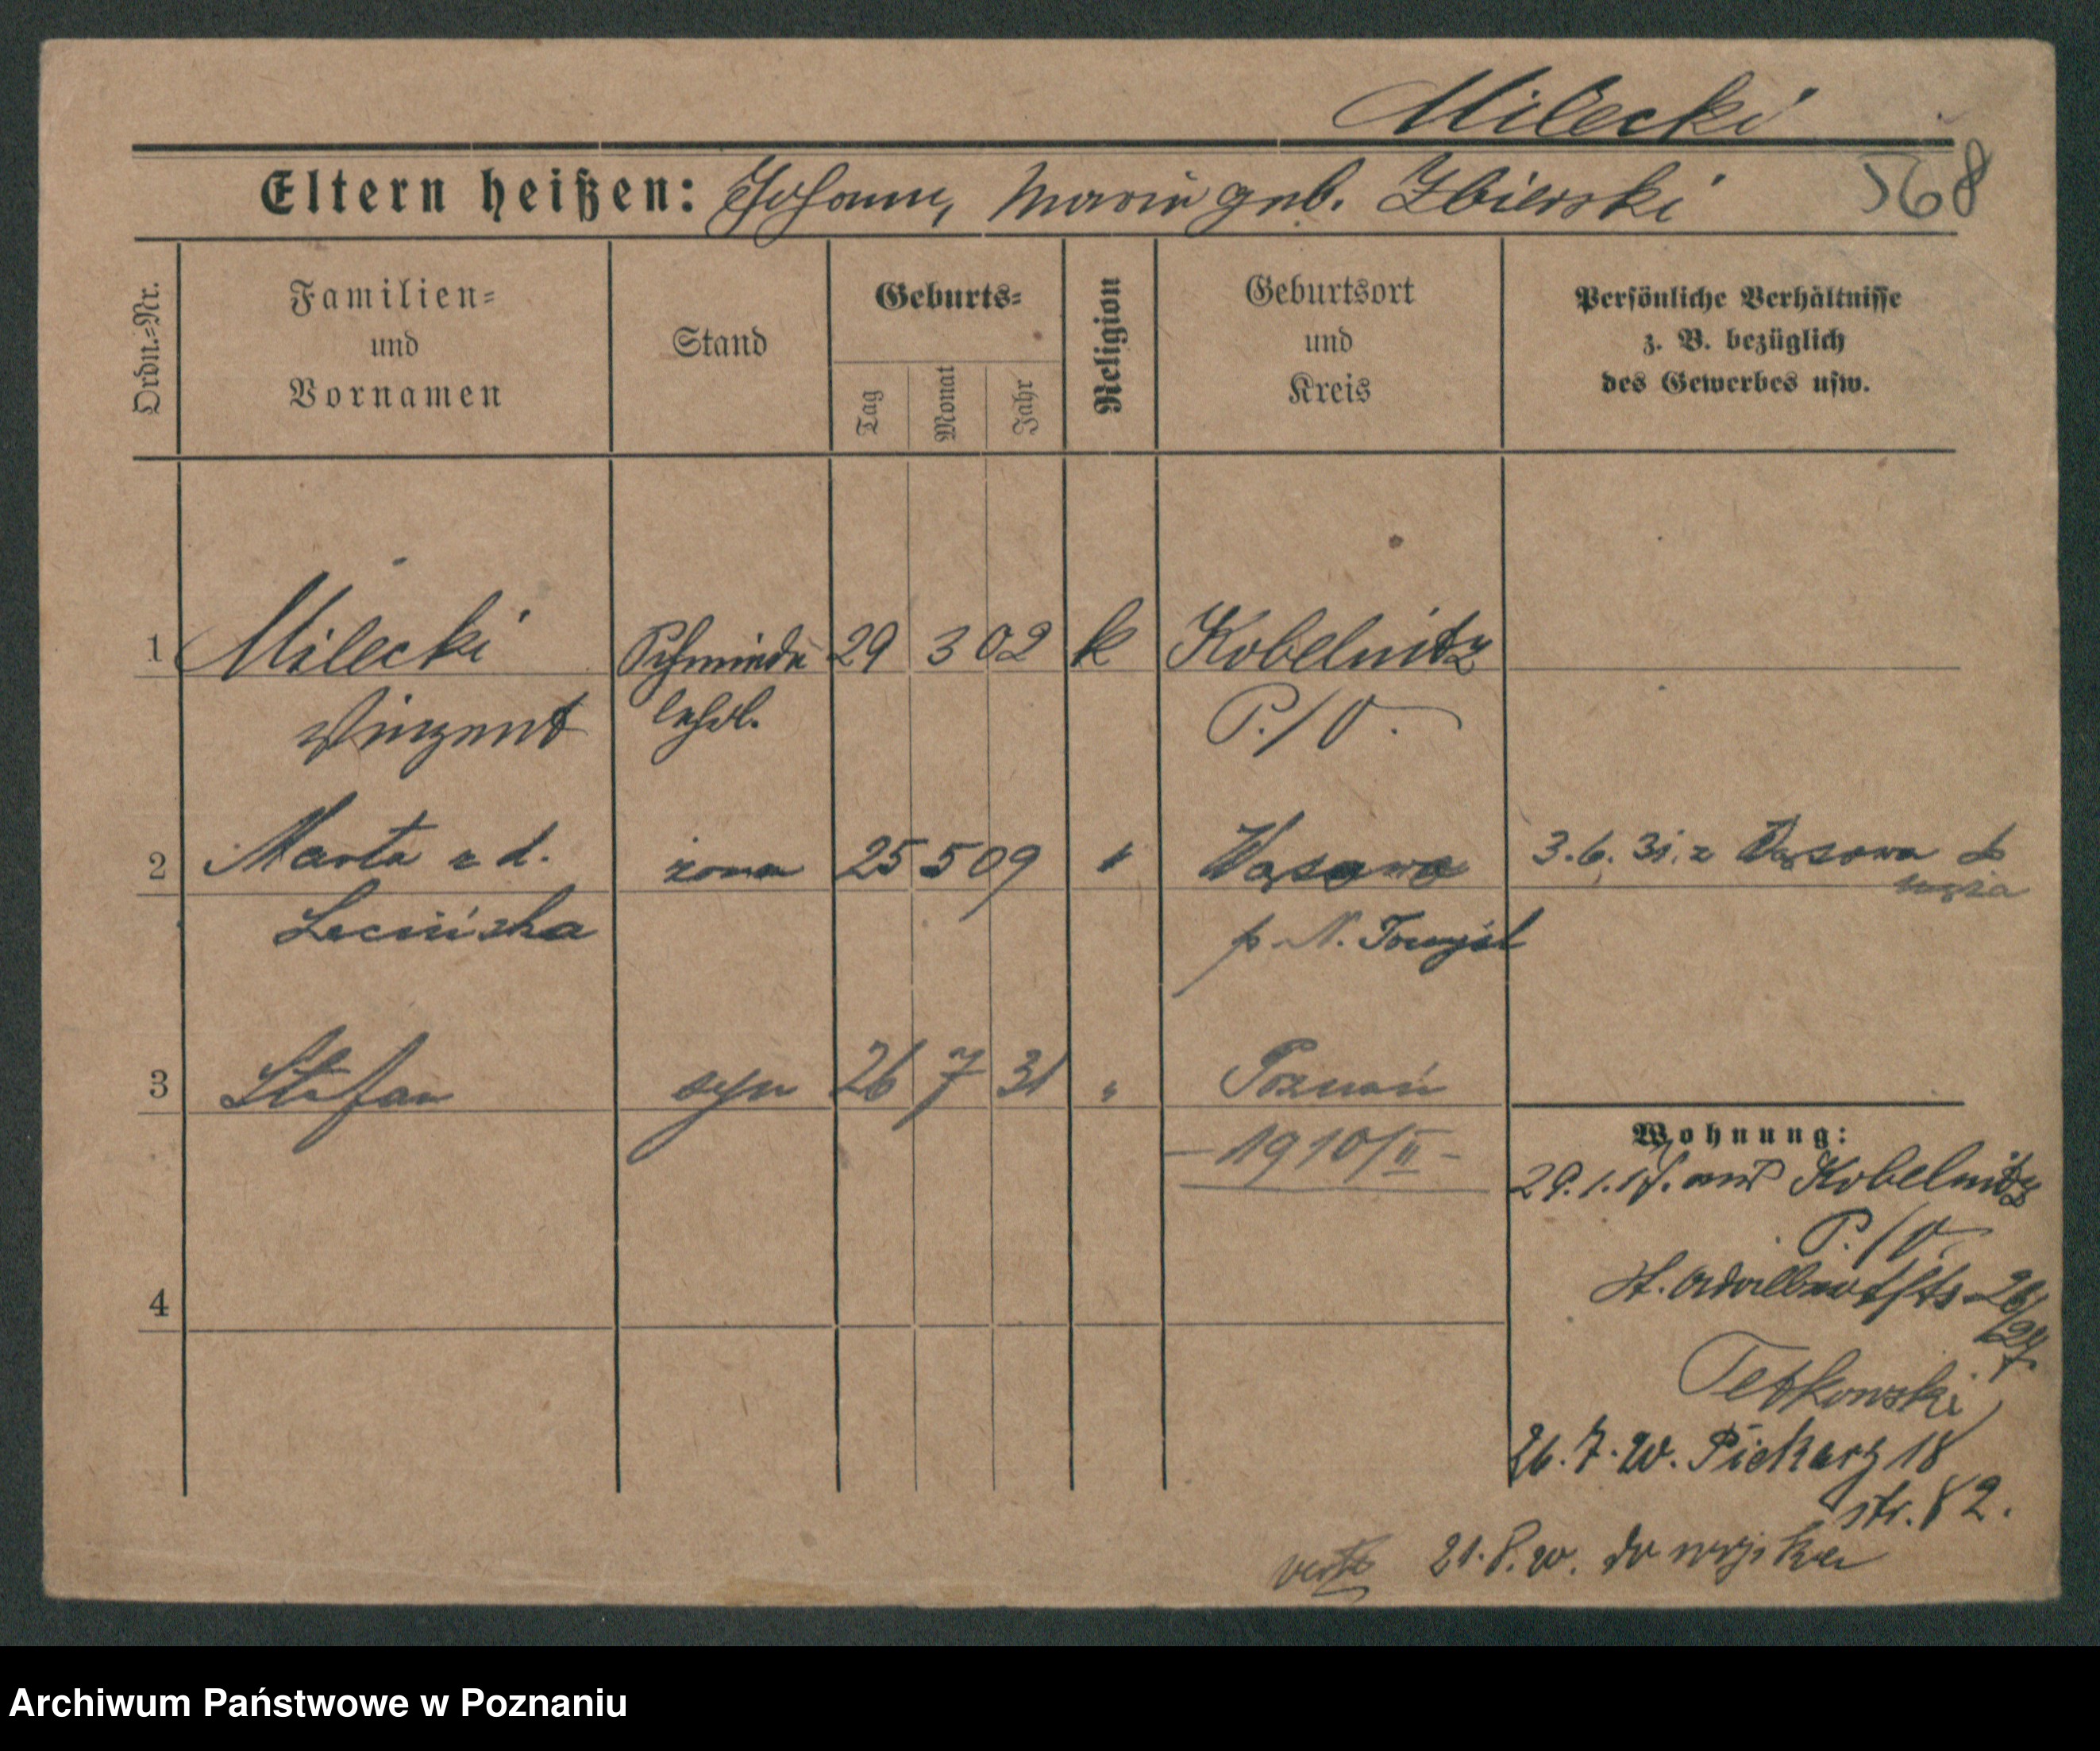 Milecki
568
Eltern heißen: Johann, Maria geb. Zbierski
Ordn.=Nr.
Familien=
und
Vornamen
Stand
Geburts=
Tag
Monat
Jahr
Religion
Geburtsort
und
Kreis
Persönliche Verhältnisse
z. B. bezüglich
des Gewerbes usw.
1 Milecki Schmiede 29 3 02 k Kobelnitz
Vinzent lehrl. P./O.
2 Marta z d. żona 25 5 09 " Wąsowo 3.6.31. z Wąsowa do
męża
p. N. Tomyśl
3 Stefan syn 26 7 31 " Poznań
- 1910/II -
Wohnung:
29.1.17. aus Kobelnitz
P./O.
St. Adalbertstr 26/27
Tetkowski
4
26.7.20. Piekarz 18
str. 82.
verte 21.8.20. do wojska
Archiwum Państwowe w Poznaniu